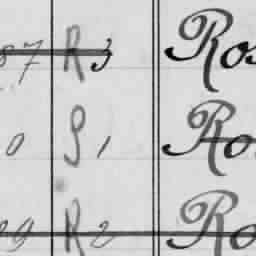 87 R 3 Ros
0 S 1 Ro
29 R 2 Ro